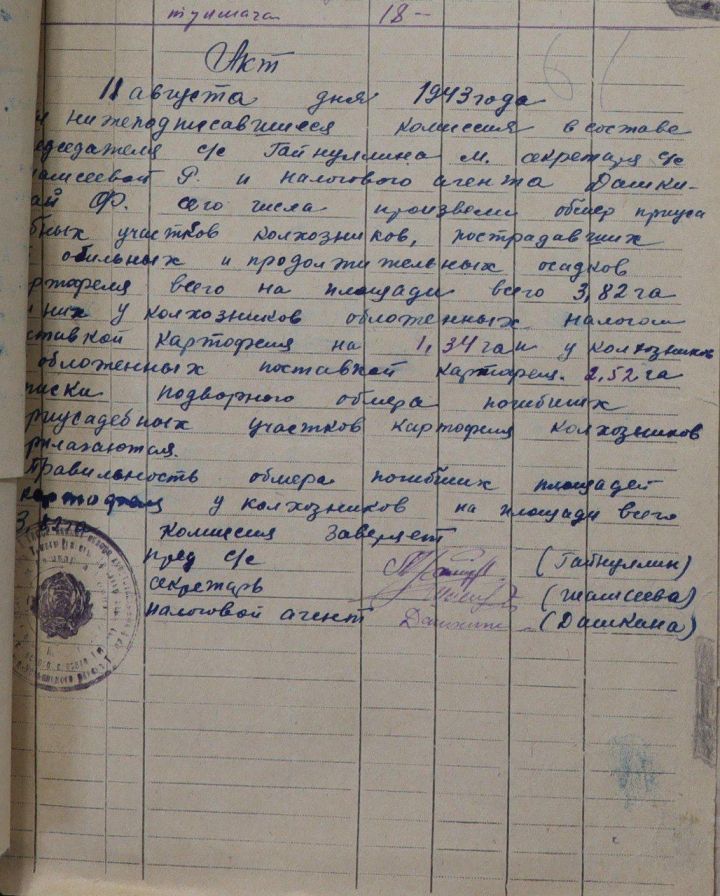 18-
Акт
11 августа дня 1943 года
нижеподписавшиеся комиссия в составе
едседателя с/с Гайнуллина М. секретаря с/с
амсеевой Р. и налогового агента Дашки-
ай Ф. сего числа произвели обмер приуса
бных участков колхозников, пострадавших
обильных и продолжительных осадков
ртофеля всего на площади всего 3,82 га
них у колхозников обложенных налогом
ставкой картофеля на 1,34 га и у колхозников
обложенных поставкой картофеля. 2,52 га
писки подворного обмера погибших
риусадебных участков картофеля колхозников
рилагаются.
Правильность обмера погибших площадей
картофеля у колхозников на площади всего
3,82 га комиссия заверяет
пред с/с (Гайнуллин)
секретарь (Шамсеева)
налоговой агент Дашкина (Дашкана)